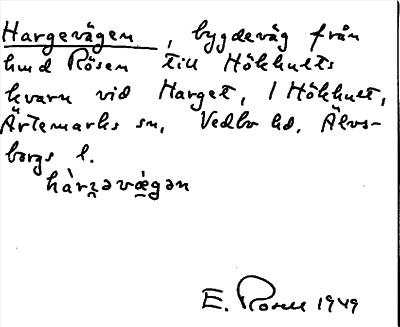 Hargevägen, bygdeväg från
lmd Rösen till Hökhults
kvarn vid Harget, 1 Hökhult,
Ärtemarks sn, Vedbo hd, Älvs-
borgs l.
hàrʒəvæ̀gən
E. Rosell 1949